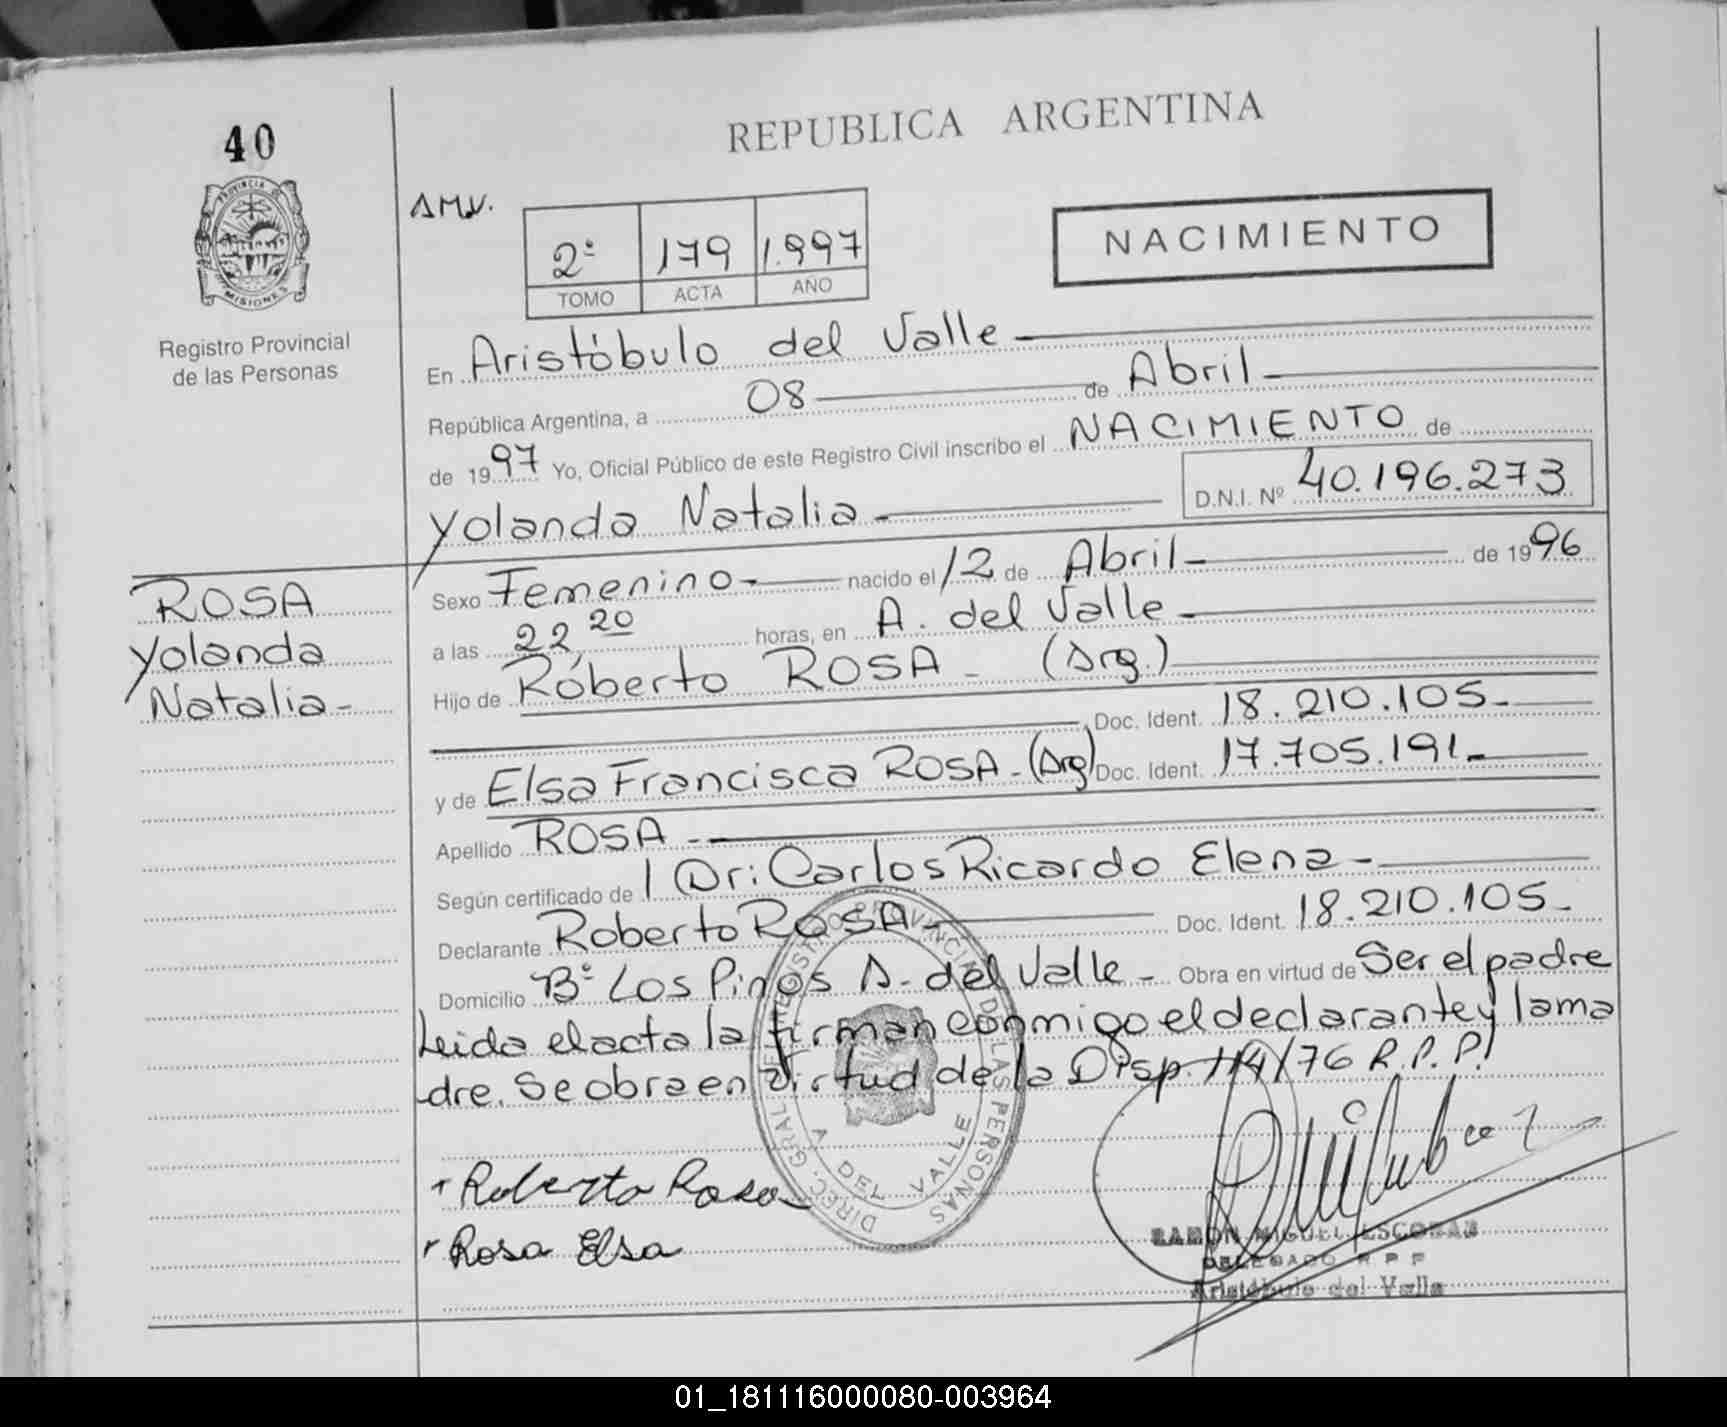 40
PROVINCIA DE
MISIONES
Registro Provincial
de las Personas
REPUBLICA ARGENTINA
AMV.
2º 179 1.997
TOMO ACTA AÑO
NACIMIENTO
En Aristóbulo del Valle
República Argentina, a 08 de Abril
de 1997 Yo, Oficial Público de este Registro Civil inscribo el NACIMIENTO de
Yolanda Natalia D.N.I. Nº 40.196.273
ROSA
Yolanda
Natalia-
Sexo Femenino nacido el 12 de Abril de 1996
a las 22,20 horas, en A. del Valle
Hijo de Roberto ROSA - (Arg.)
Doc. Ident. 18.210.105-
y de Elsa Francisca ROSA-(Arg) Doc. Ident. 17.705.191-
Apellido ROSA
Según certificado de Dr: Carlos Ricardo Elena-
Declarante Roberto ROSA- Doc. Ident. 18.210.105-
Domicilio Bº Los Pinos A. del Valle- Obra en virtud de Ser el padre
Leida el acta la firman conmigo el declarante y la ma
dre. Se obra en virtud de la Disp 114/76 R.P.P.
DIREC. GRAL. DE REGISTRO PROVINCIAL DE LAS PERSONAS
A. DEL VALLE
Roberto Rosa
Rosa Elsa
RAMON MIGUEL ESCOBAR
DELEGADO R P P
Aristóbulo del Valle
01_181116000080-003964